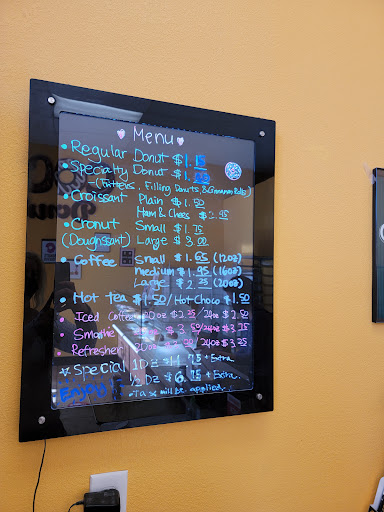 Menu
• Regular Donut $1.15
• Specialty Donut $1.
-(Fritters, Filling Donuts, & Cinnamon Rolls)
• Croissant Plain $1.50
Ham & Chees $2.95
• Cronut Small $1.75
(Doughssant) Large $3.00
• Coffee Small $1.65 (12oz)
medium $1.95 (16oz)
Large $2.25 (20oz)
• Hot tea $1.50/Hot Choco $1.50
• Iced Coffee 20oz $2.25/24oz $2.50
• Smoothie $3.50/24oz $3.75
• Refresher 20oz 24oz $3.25
☆ Special 1 Dz $11.75 + Extra
½ Dz $6.75 + Extra.
Enjoy! • Tax will be applied.